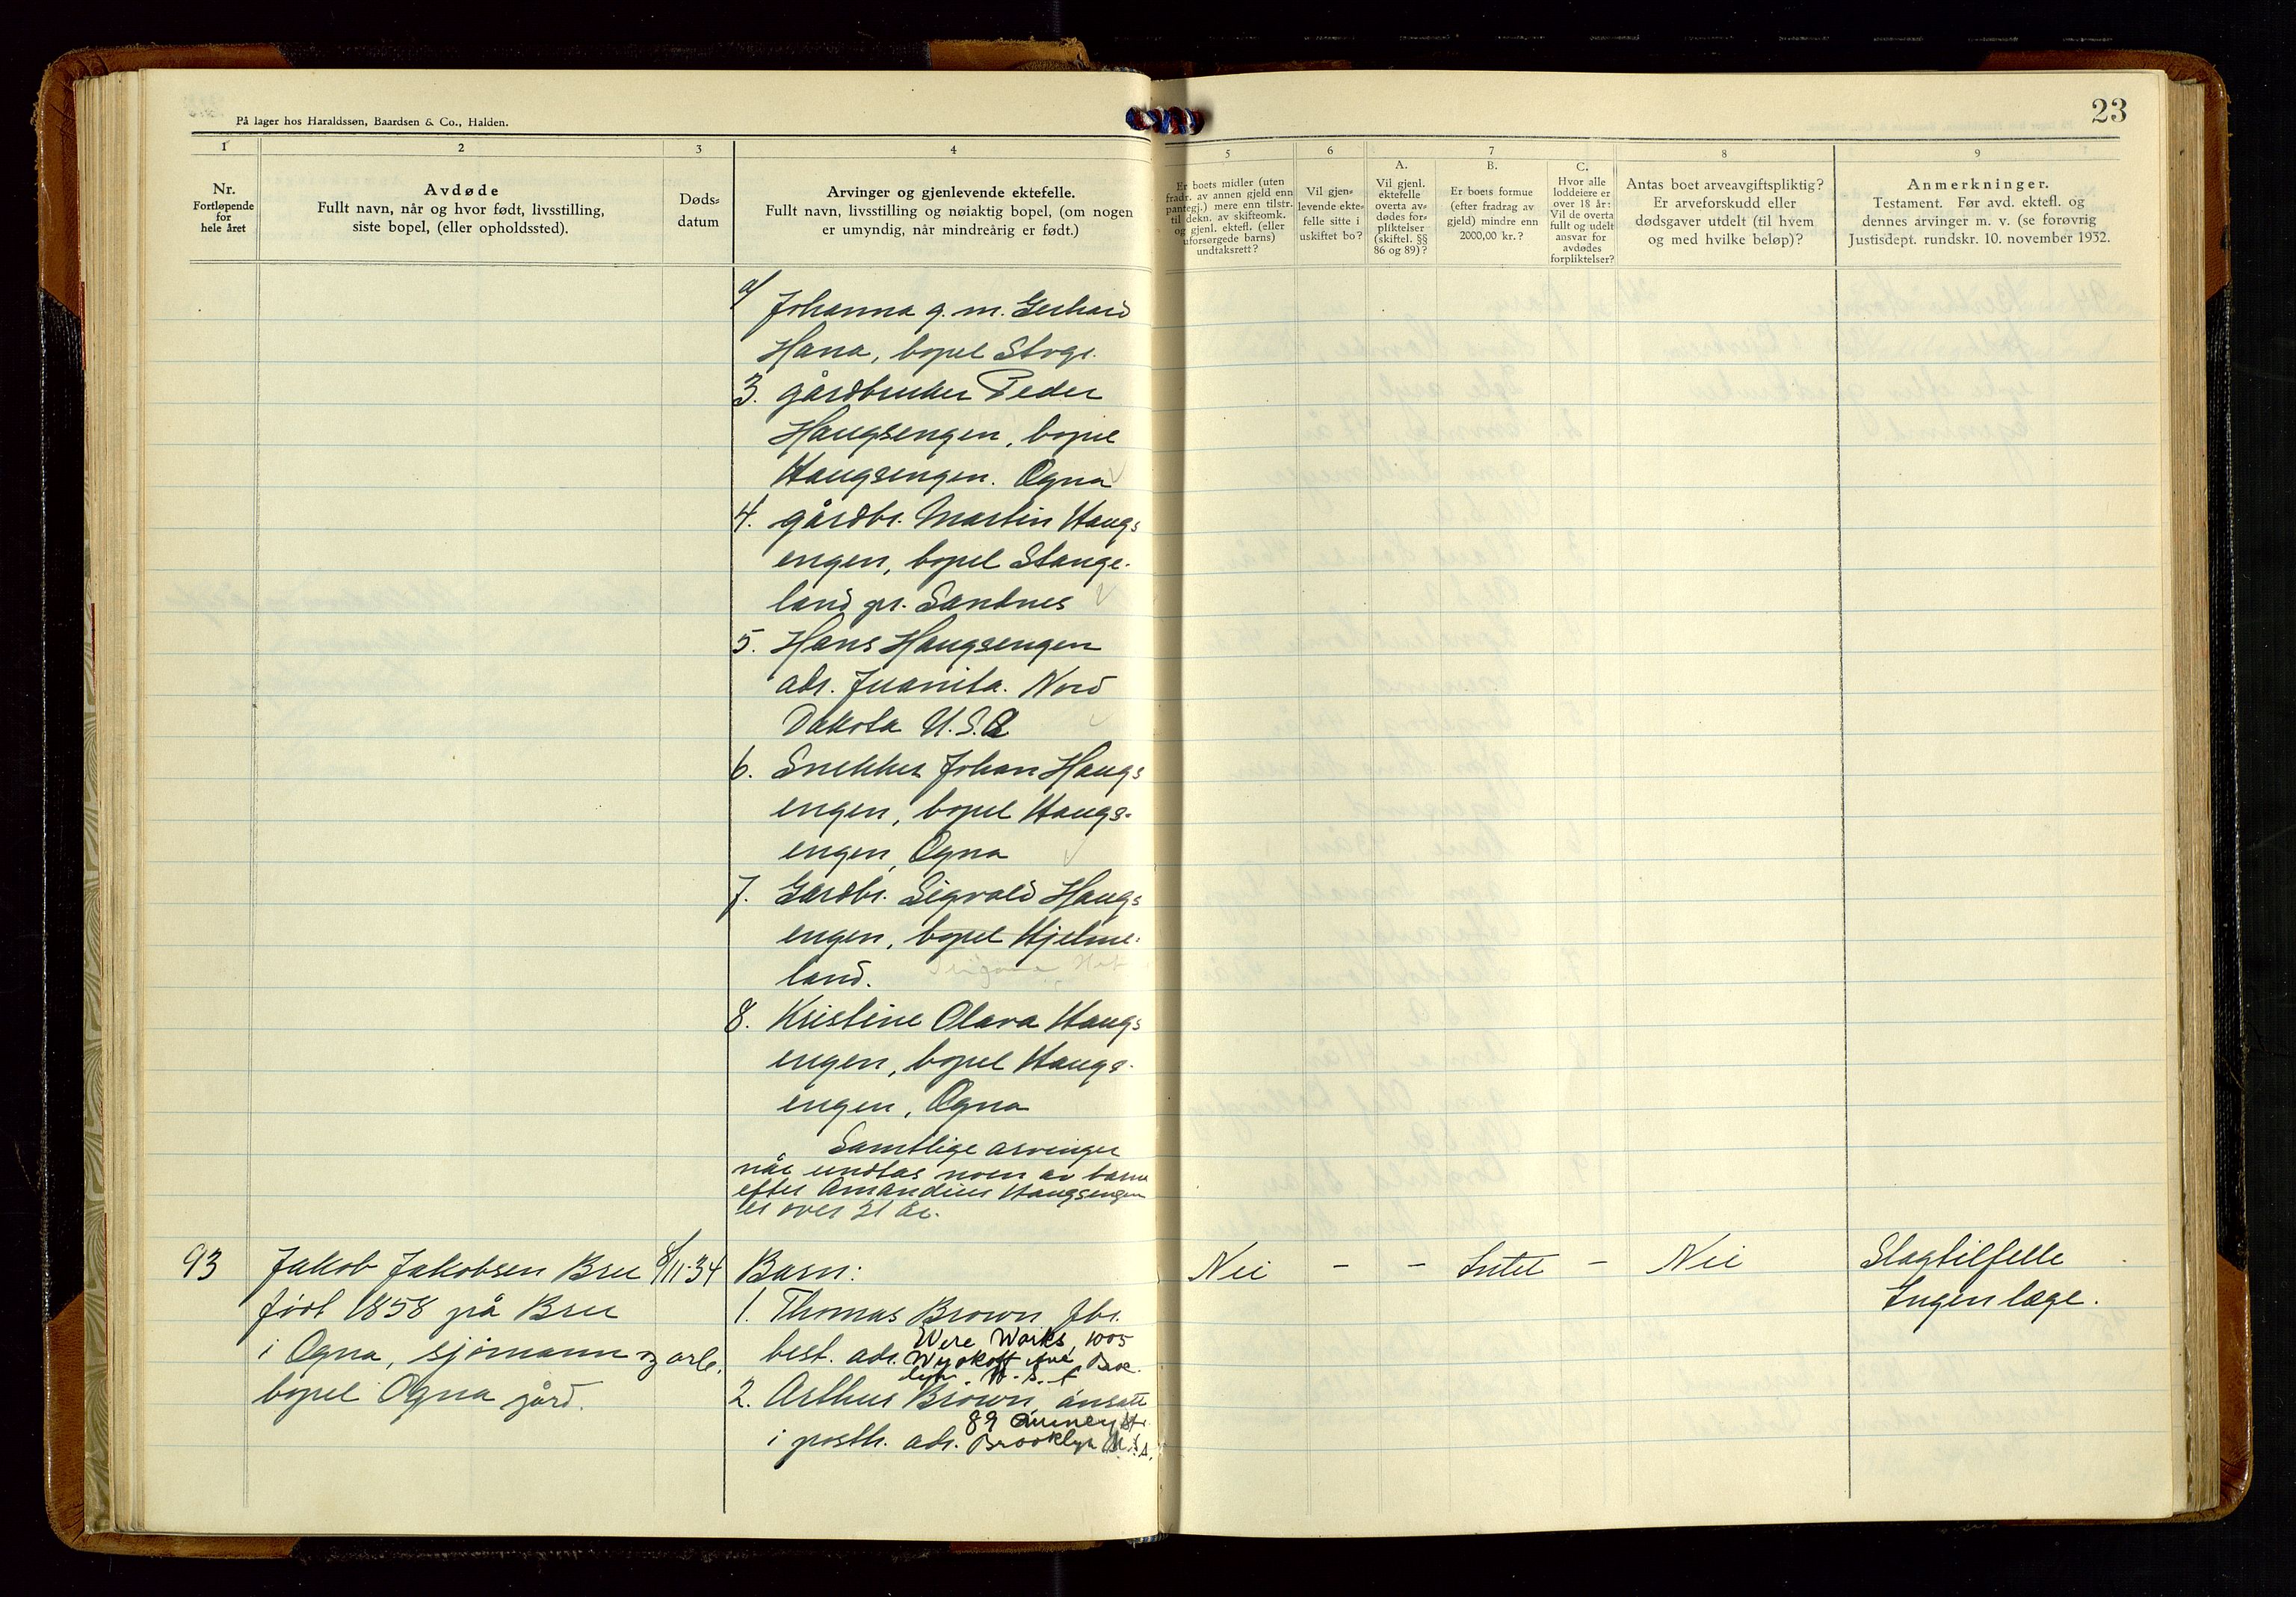 På lager hos Haraldssøn, Baardsen & Co., Halden.
23
1
2
3
4
5
6
7
8
9
Nr.
Fortløpende
for
hele året
Avdøde
Fullt navn, når og hvor født, livsstilling,
siste bopel, (eller opholdssted).
Døds-
datum
Arvinger og gjenlevende ektefelle.
Fullt navn, livsstilling og nøiaktig bopel, (om nogen
er umyndig, når mindreårig er født.)
Er boets midler (uten
fradr. av annen gjeld enn
pantegj.) mere enn tilstr.
til dekn. av skifteomk.
og gjenl. ektefl. (eller
uforsørgede barns)
undtaksrett?
Vil gjen-
levende ekte-
felle sitte i
uskiftet bo?
A.
Vil gjenl.
ektefelle
overta av-
dødes for-
pliktelser
(skiftel. §§
86 og 89)?
B.
Er boets formue
(efter fradrag av
gjeld) mindre enn
2000,00 kr.?
C.
Hvor alle
loddeiere er
over 18 år:
Vil de overta
fullt og udelt
ansvar for
avdødes
forpliktelser?
Antas boet arveavgiftspliktig?
Er arveforskudd eller
dødsgaver utdelt (til hvem
og med hvilke beløp)?
Anmerkninger.
Testament. Før avd. ektefl. og
dennes arvinger m. v. (se forøvrig
Justisdept. rundskr. 10. november 1932.
Johanna g. m. Gerhard
Hana, bopel
3. gårdbruker Peder
Haugsengen, bopel
Haugsengen. Ogna
4. gårdbr. Martin Haugs
engen, bopel Stange-
land pr. Sandnes
5. Hans Haugsengen
adr. Juanita. Nord
Dakota U.S.A
6. Snekker Johan Haugs
engen, bopel Haugs-
engen, Ogna
7. Gardbr. Sigvald Haugs
engen, bopel Hjelme-
land.
8. Kristine Olava Haugs
engen, bopel Haugs-
engen, Ogna
Samtlige arvinger
når undtas noen av barna
efter Amandus Haugsengen
er over 21 år.
93
Jakob Jakobsen Bru
8/11-34
Barn:
Nei
-
-
Intet
-
Nei
Slagtilfelle
født 1858 på Bru
1. Thomas Brown, fbr.
Ingen læge.
i Ogna, sjømann og arb.
best. adr. Were Works, 1005
Wyckoff Ave,
bopel Ogna gård.
2. Arthur Brown, ansatt
i posth. adr. 89
Brooklyn U.S.A.